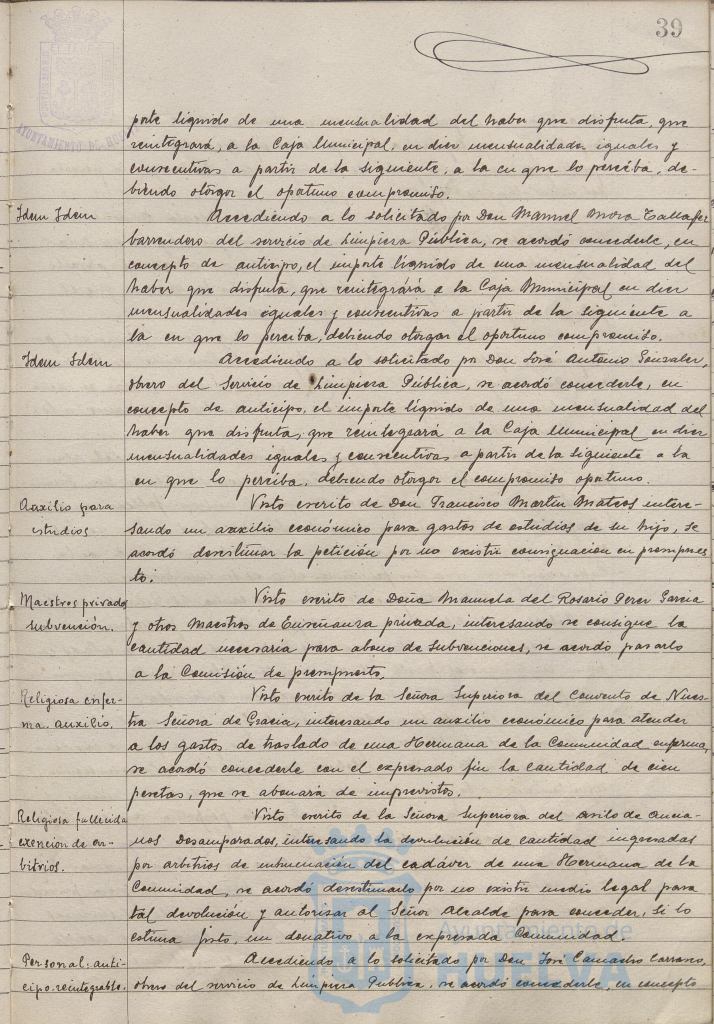 39
AYUNTAMIENTO DE HUELVA
porte líquido de una mensualidad del haber que disfruta, que
reintegrará, a la Caja Municipal, en diez mensualidades iguales y
consecutivas a partir de la siguiente, a la en que lo perciba, de-
biendo otorgar el oportuno compromiso.
Idem Idem
Accediendo a lo solicitado por Don Manuel Mora
barrendero del servicio de Limpieza Pública, se acordó concederle, en
concepto de anticipo, el importe líquido de una mensualidad del
haber que disfruta, que reintegrará a la Caja Municipal en diez
mensualidades iguales y consecutivas a partir de la siguiente a
la en que lo perciba, debiendo otorgar el oportuno compromiso.
Idem Idem
Accediendo a lo solicitado por Don José Antonio Gonzalez,
obrero del Servicio de Limpieza Pública, se acordó concederle, en
concepto de anticipo, el importe líquido de una mensualidad del
haber que disfruta, que reintegrará a la Caja Municipal en diez
mensualidades iguales y consecutivas a partir de la siguiente a la
en que lo perciba, debiendo otorgar el compromiso oportuno.
Auxilio para
estudios
Visto escrito de Don Francisco Martin Mateos intere-
sando un auxilio económico para gastos de estudios de su hijo, se
acordó desestimar la petición por no existir consignación en presupues
to.
Maestros privados
subvención.
Visto escrito de Doña Manuela del Rosario Perez Garcia
y otros Maestros de Enseñanza privada, interesando se consigne la
cantidad necesaria para abono de subvenciones, se acordó pasarlo
a la Comisión de presupuesto.
Religiosa enfer-
ma. auxilio.
Visto escrito de la Señora Superiora del Convento de Nues-
tra Señora de Gracia, interesando un auxilio económico para atender
a los gastos de traslado de una Hermana de la Comunidad enferma,
se acordó concederle con el expresado fin la cantidad de cien
pesetas, que se abonará de imprevistos.
Religiosa fallecida
exención de ar-
bitrios.
Visto escrito de la Señora Superiora del Asilo de Ancia-
nos Desamparados, interesando la devolución de cantidad ingresadas
por arbitrios de inhumación del cadáver de una Hermana de la
Comunidad, se acordó desestimarlo por no existir medio legal para
tal devolución y autorizar al Señor Alcalde para conceder, si lo
estima justo, un donativo a la expresada Comunidad.
Personal: anti-
cipo reintegrable.
Accediendo a lo solicitado por Don José Camacho Carrasco,
obrero del servicio de Limpieza Publica, se acordó concederle, en concepto
Ayuntamiento de
HUELVA